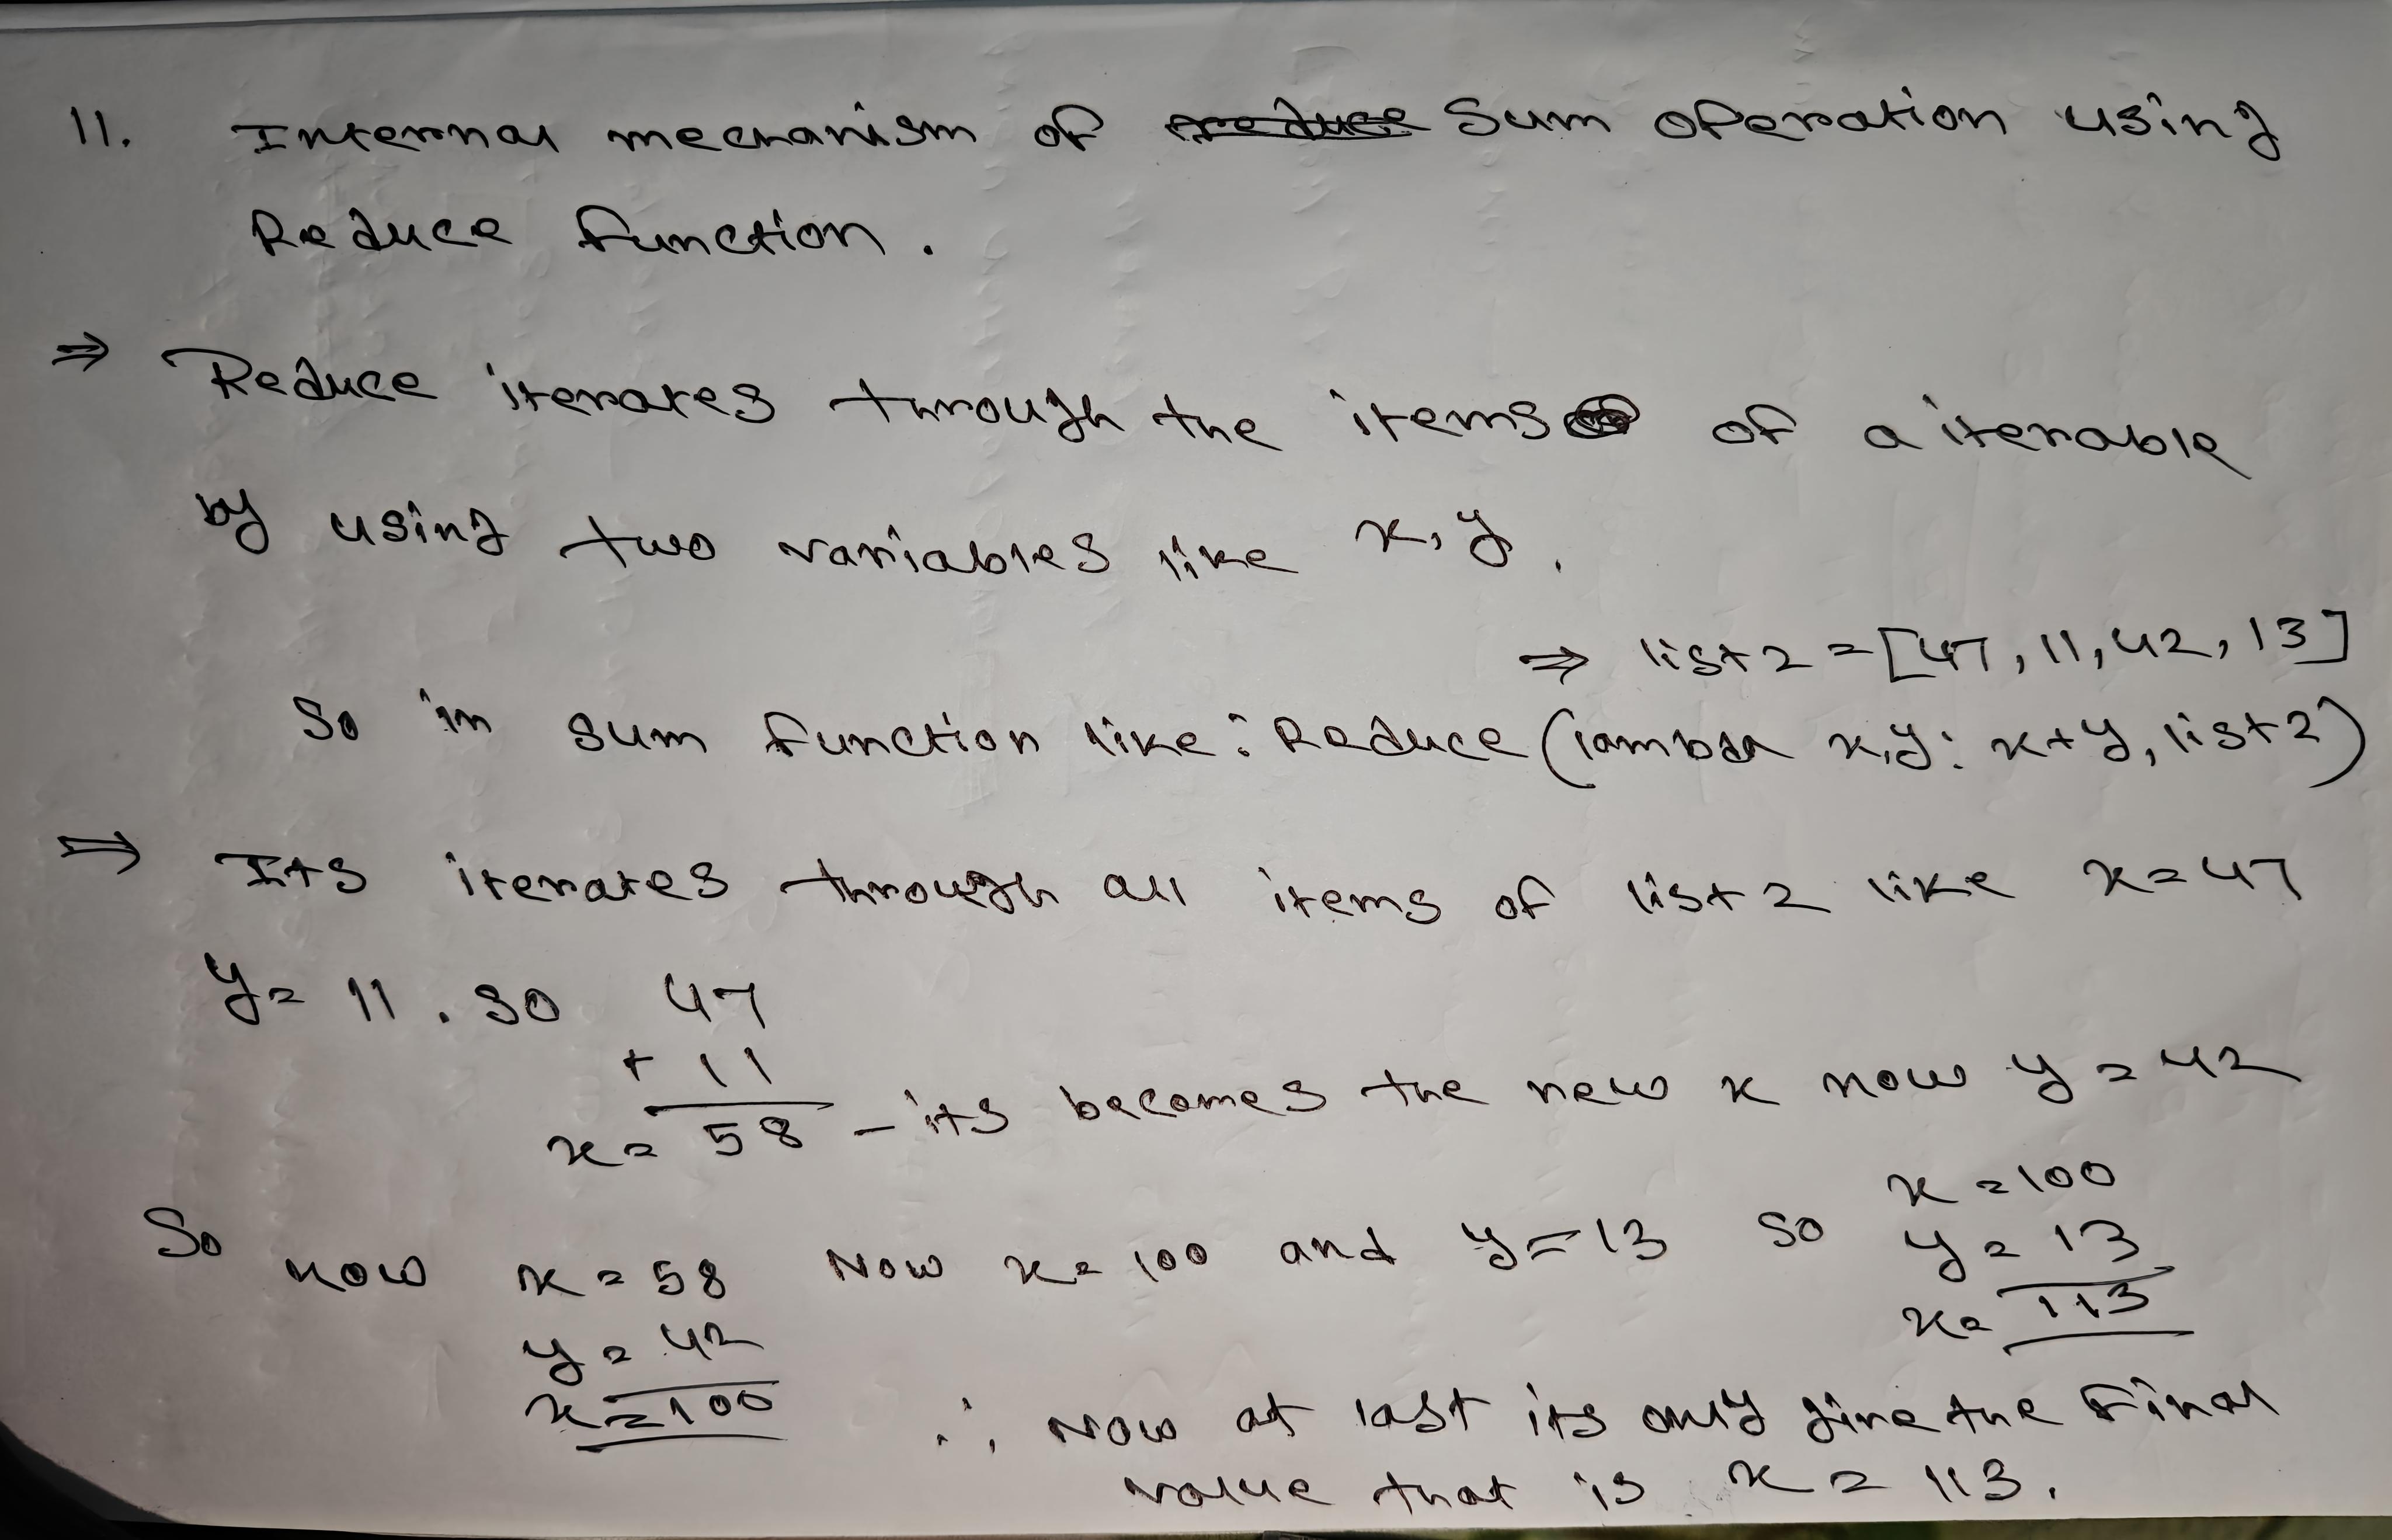 11. Internal mechanism of reduce Sum operation using
Reduce function.
⇒ Reduce iterates through the items of a iterable
by using two variables like x, y.
⇒ list2 = [47, 11, 42, 13]
So in sum function like: Reduce (lambda x,y: x+y, list2)
⇒ Its iterates through all items of list2 like x=47
y= 11. So 47
+ 11
x= 58 - its becomes the new x now y = 42
x = 100
So now x = 58 Now x= 100 and y = 13 so y = 13
x= 113
y = 42
x = 100
∴ Now at last its only give the final
value that is x = 113.